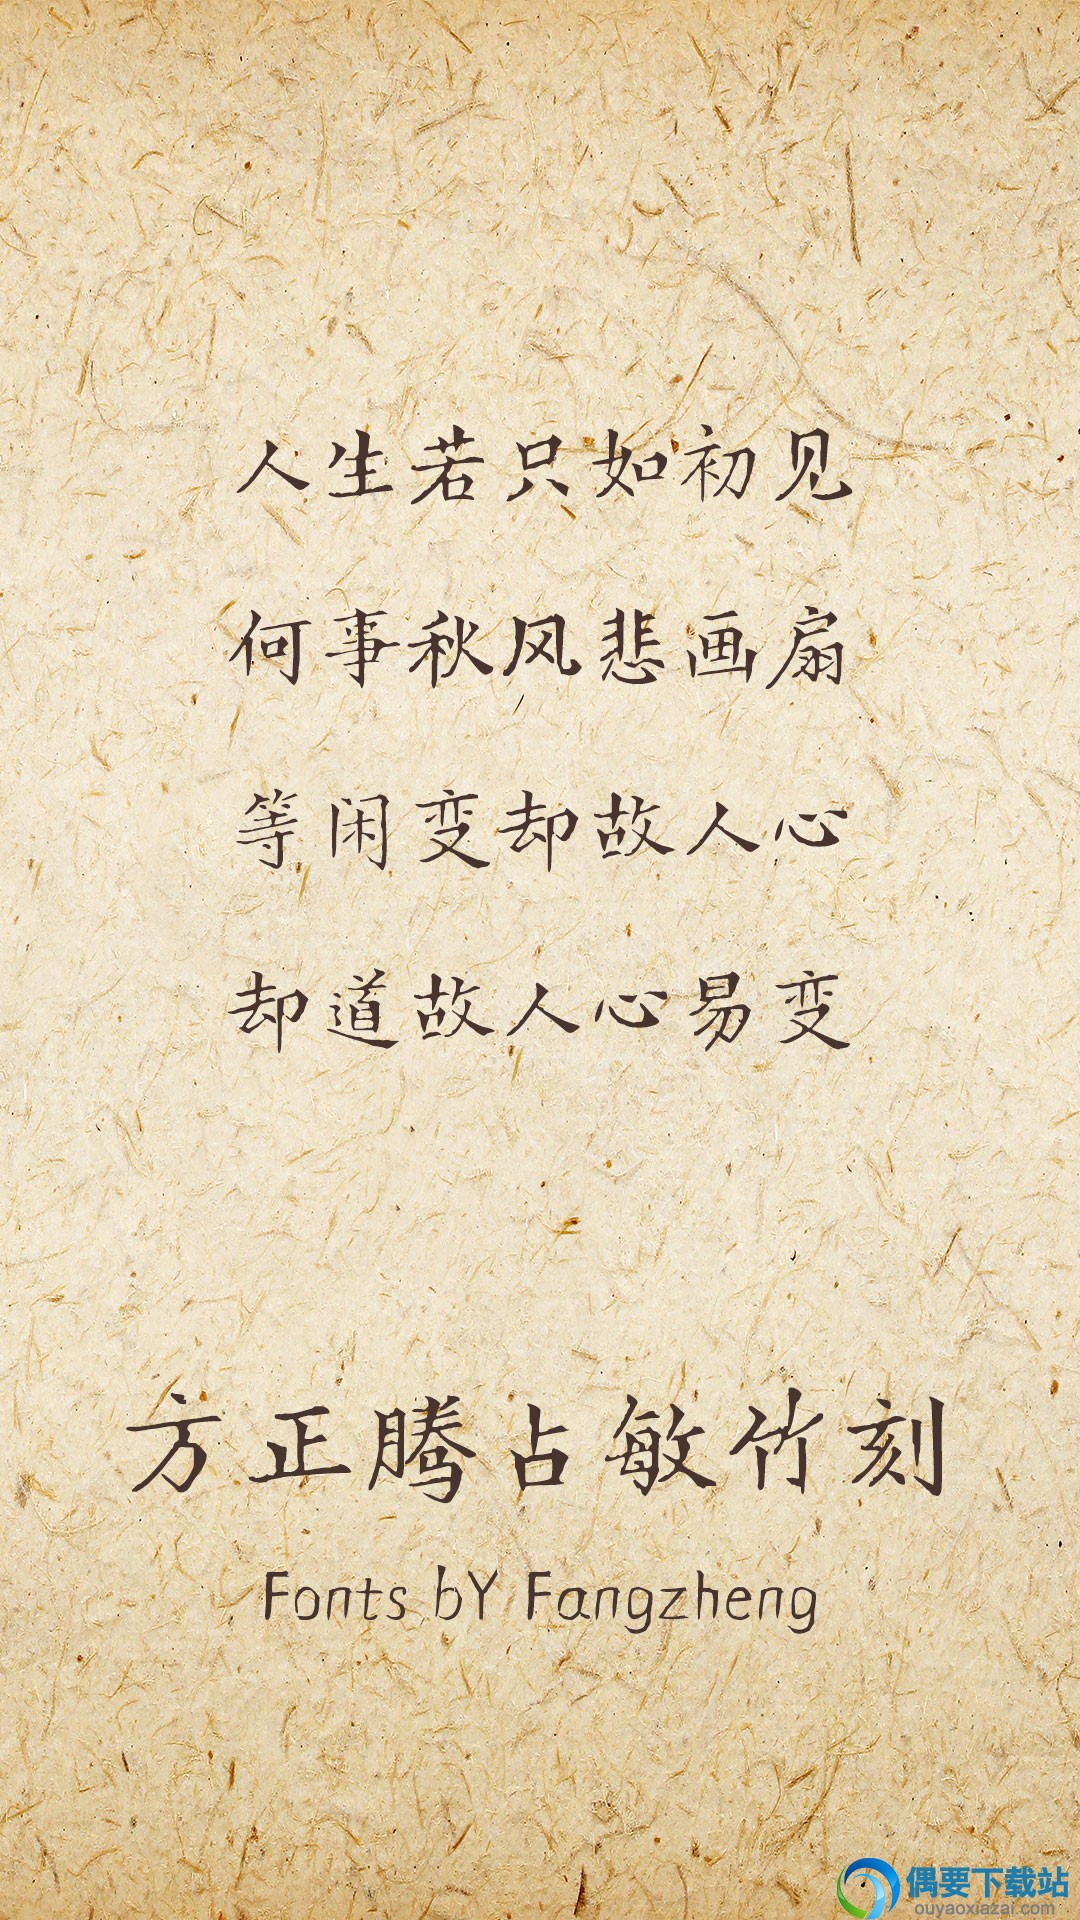 人生若只如初见
何事秋风悲画扇
等闲变却故人心
却道故人心易变
方正腾占敏竹刻
Fonts bY Fangzheng
偶要下载站
ouyaoxiazai.com